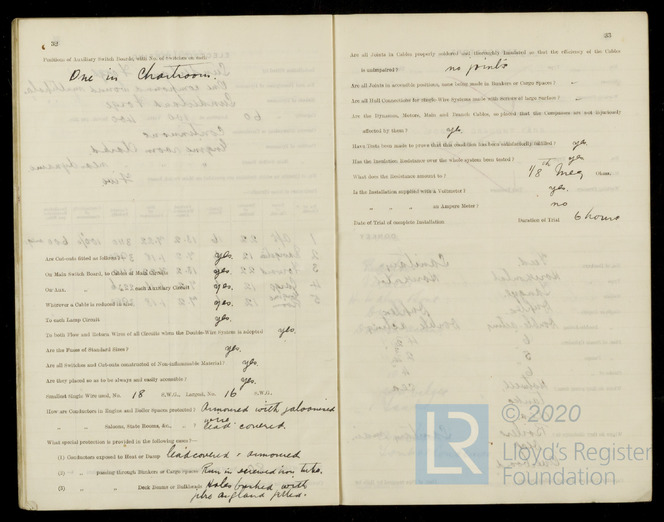 32
Positions of Auxiliary Switch Boards, with No. of Switches on each
One in Chartroom.
Are Cut-outs fitted as follows:—
On Main Switch Board, to Cables of Main Circuits yes.
On Aux. " " each Auxiliary Circuit yes.
Wherever a Cable is reduced in size yes.
To each Lamp Circuit yes.
To both Flow and Return Wires of all Circuits when the Double-Wire System is adopted yes.
Are the Fuses of Standard Sizes? yes.
Are all Switches and Cut-outs constructed of Non-inflammable Material? yes.
Are they placed so as to be always and easily accessible? yes.
Smallest Single Wire used, No. 18 S.W.G., Largest, No. 16 S.W.G.
How are Conductors in Engine and Boiler Spaces protected? Armoured with galvanised wire
" " Saloons, State Rooms, &c., " ? lead covered.
What special protection is provided in the following cases?—
(1) Conductors exposed to Heat or Damp lead covered + armoured
(2) " passing through Bunkers or Cargo Spaces Run in screwed iron tube.
(3) " " Deck Beams or Bulkheads Holes bushed with
fibre and gland fitted.
33
Are all Joints in Cables properly soldered and thoroughly insulated so that the efficiency of the Cables
is unimpaired? no joints
Are all Joints in accessible positions, none being made in Bunkers or Cargo Spaces? —
Are all Hull Connections for Single-Wire Systems made with screws of large surface? —
Are the Dynamos, Motors, Main and Branch Cables, so placed that the Compasses are not injuriously
affected by them? yes.
Have Tests been made to prove that this condition has been satisfactorily fulfilled? yes
Has the Insulation Resistance over the whole system been tested? yes
What does the Resistance amount to? 1/8th Meg Ohms.
Is the Installation supplied with a Voltmeter? yes.
" " " " an Ampere Meter? no
Date of Trial of complete Installation Duration of Trial 6 hours
© 2020
LR
Lloyd's Register
Foundation